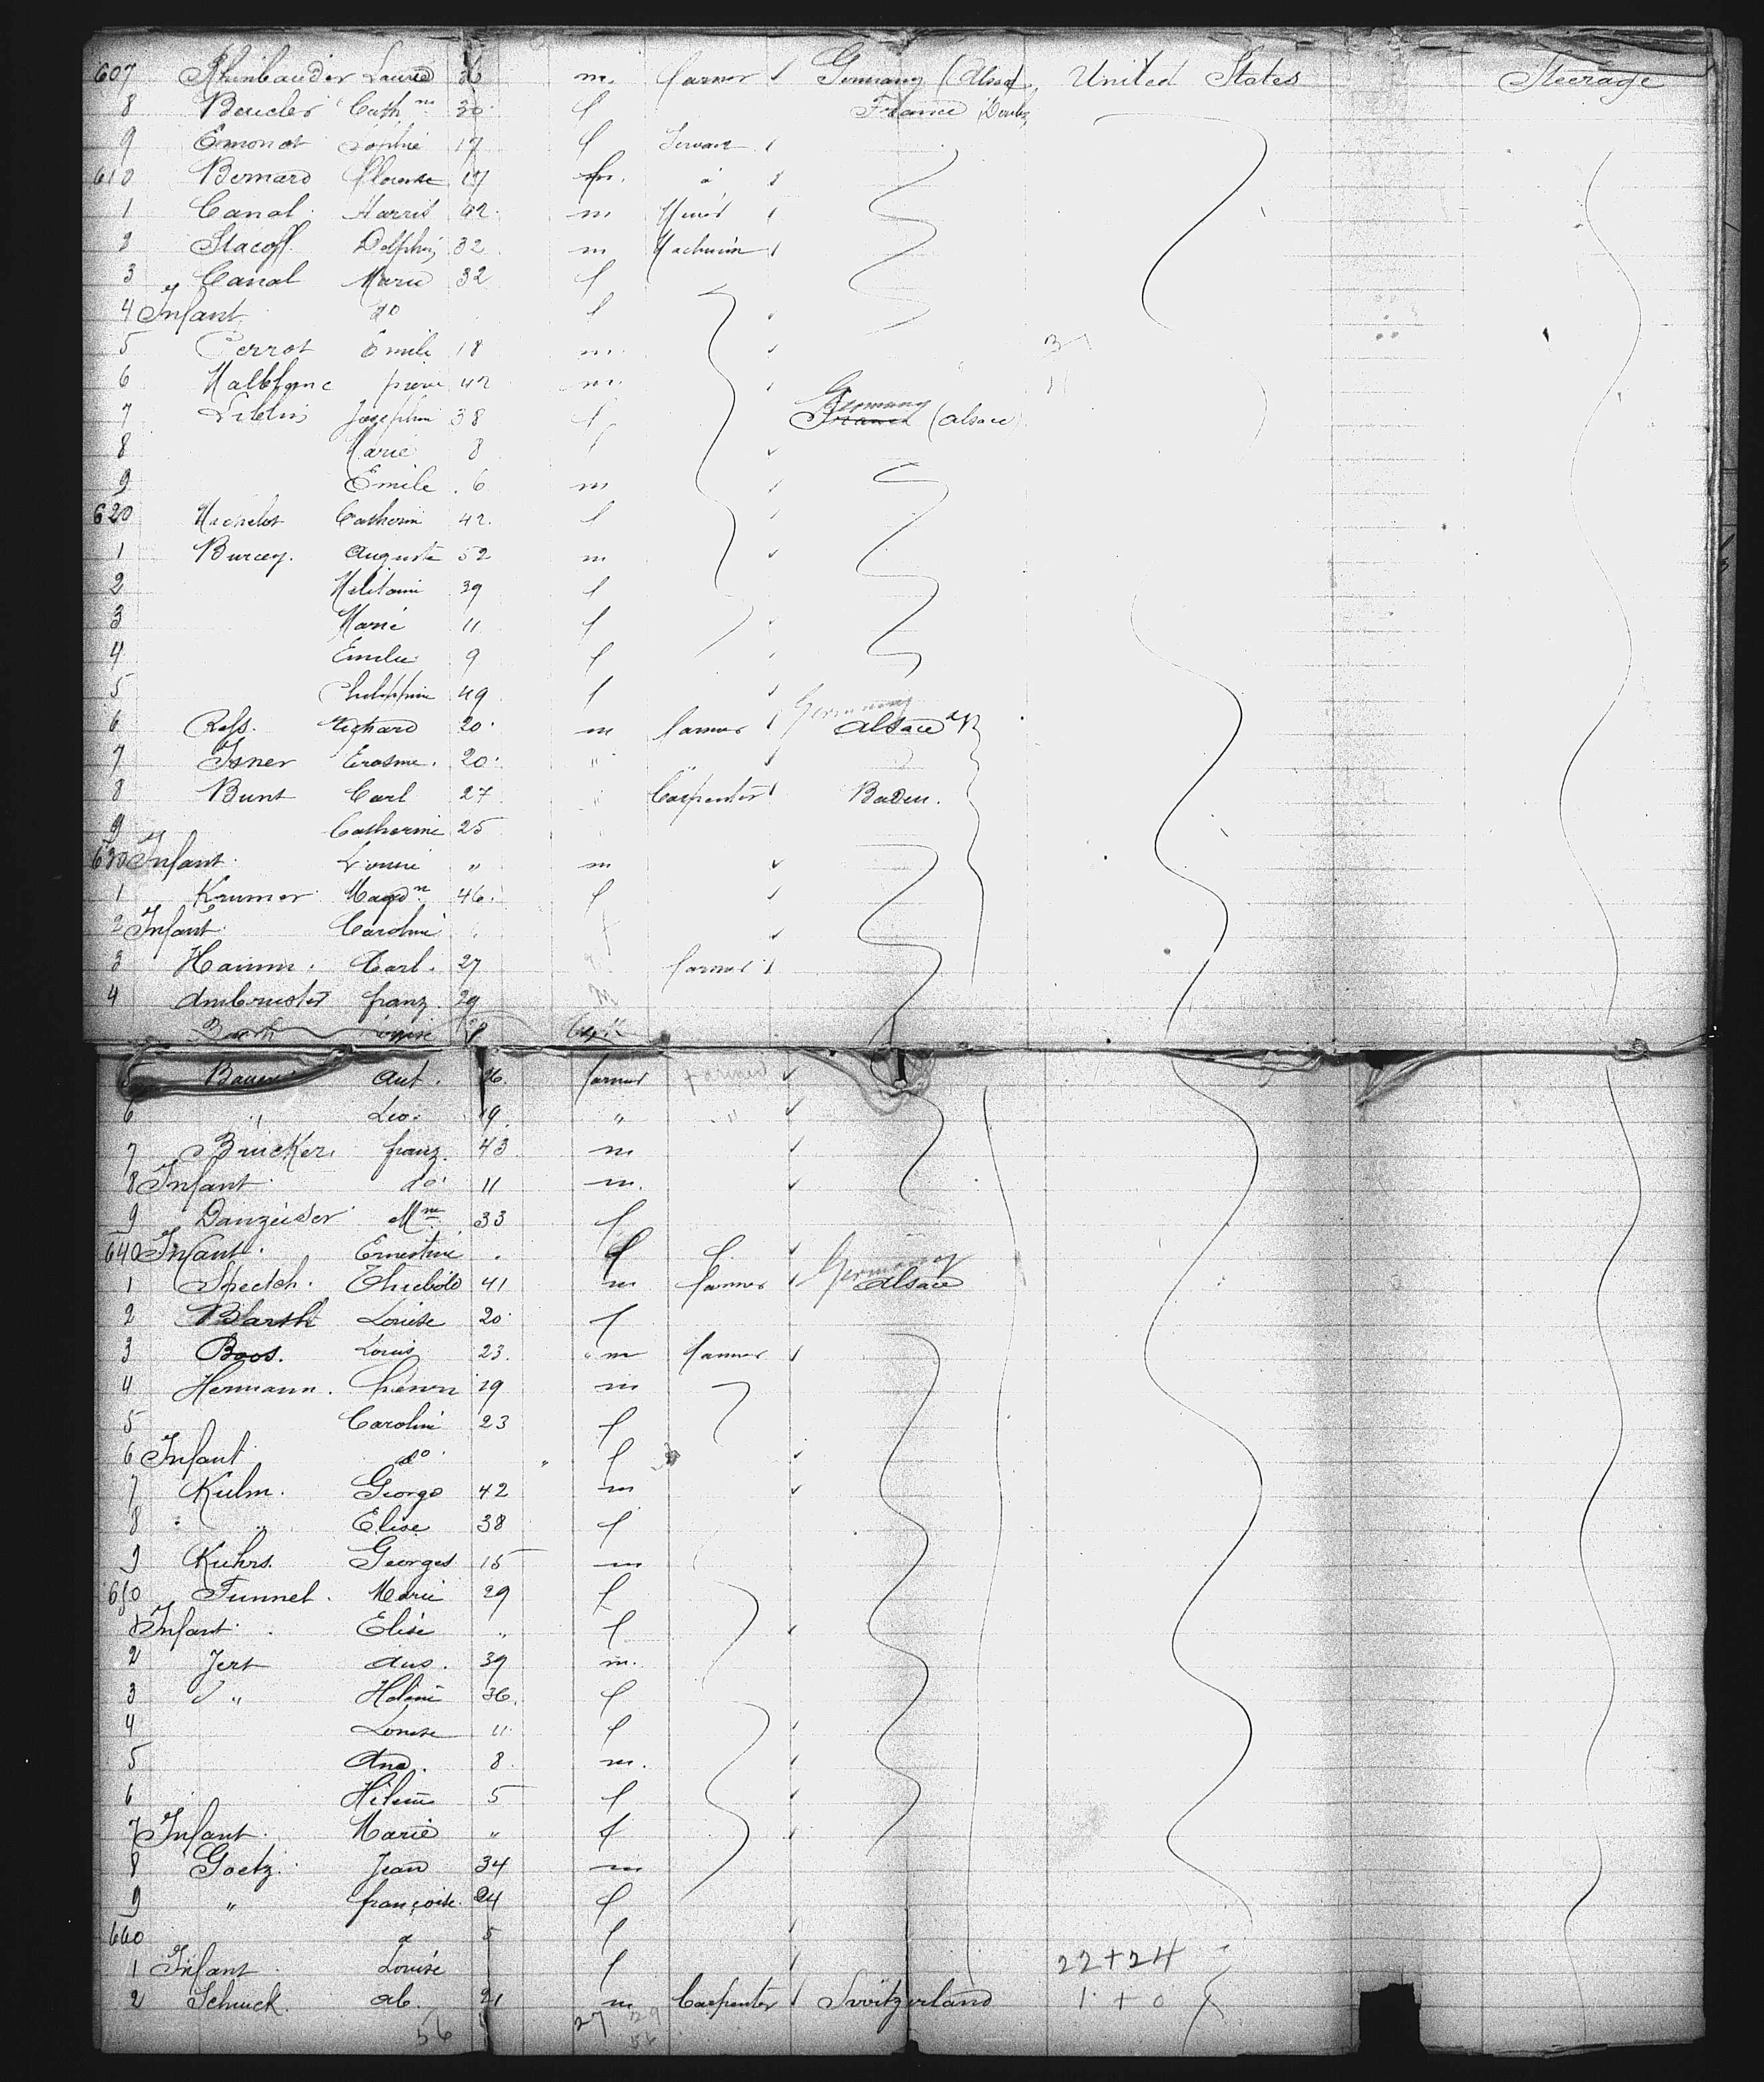 607 Rhinbauder Laurie 36 m. farmer Germany (Alsace) United States Steerage
8 Beucler Cath ne 30 f France (Doubs)
9 Emonot Sophie 17 f Servant
610 Bernard Florense 17 m.
1 Canal Harris 42 m
2 Stacoff Delphin 32 m Machinin
3 Canal Marie 32 f
4 Infant do f
5 Perrot Emile 18 m.
6 Malblanc pierre 42 m.
Germany
7 Josephin 38 f France (alsace)
8 Marie 8 f
9 Emile 6 m
620 Catherin 42. f
1 Burcey. Auguste 52 m
2 39 f
3 Marie 11 f
4 Emilie 9 f
5 Philippine 49 f Germany
6 Rass. 20 m farmer Alsace
7 Isner Erasme. 20 "
8 Bunt Carl 27 " Carpenter Baden.
9 Catherine 25
630 Infant Louise " m
1 Krumer Magd n 46. f
2 Infant Caroline f
3 Hamm. Carl. 27 farmer
4 Ambruster franz. 29 m
Barth Louise
5 Bauer Ant. 26. farmer farmer
6 " Leo. 19. " "
7 Brucker franz. 43 m
8 Infant do 11 m.
9 Danzeiser Mme 33 f
640 Infant. Ernestine . f f Germany
1 Spectch. Thiebold 41 m farmer Alsace
2 Barth Louise 20 f
3 Boos. Louis 23. m farmer
4 Hermann. henri 29 m
5 Caroline 23 f
6 Infant do " f
7 Kulm. George 42 m
8 " Elise 38 f
9 Kuhrs. Georges 15 m
650 Funnel. Marie 29 f
1 Infant Elise " f
2 Jert Aug. 39 m.
3 " Helene 36. f
4 Louise 11 f
5 And. 8. m.
6 Helene 5 f
7 Infant. Marie " f
8 Goetz. Jean 34 m
9 " françoise. 24 f
660 5 f
1 Infant Louise f 22 + 24
2 Schuck. ab. 21 m Carpenter Switzerland 1 + 0
56 27 29
56